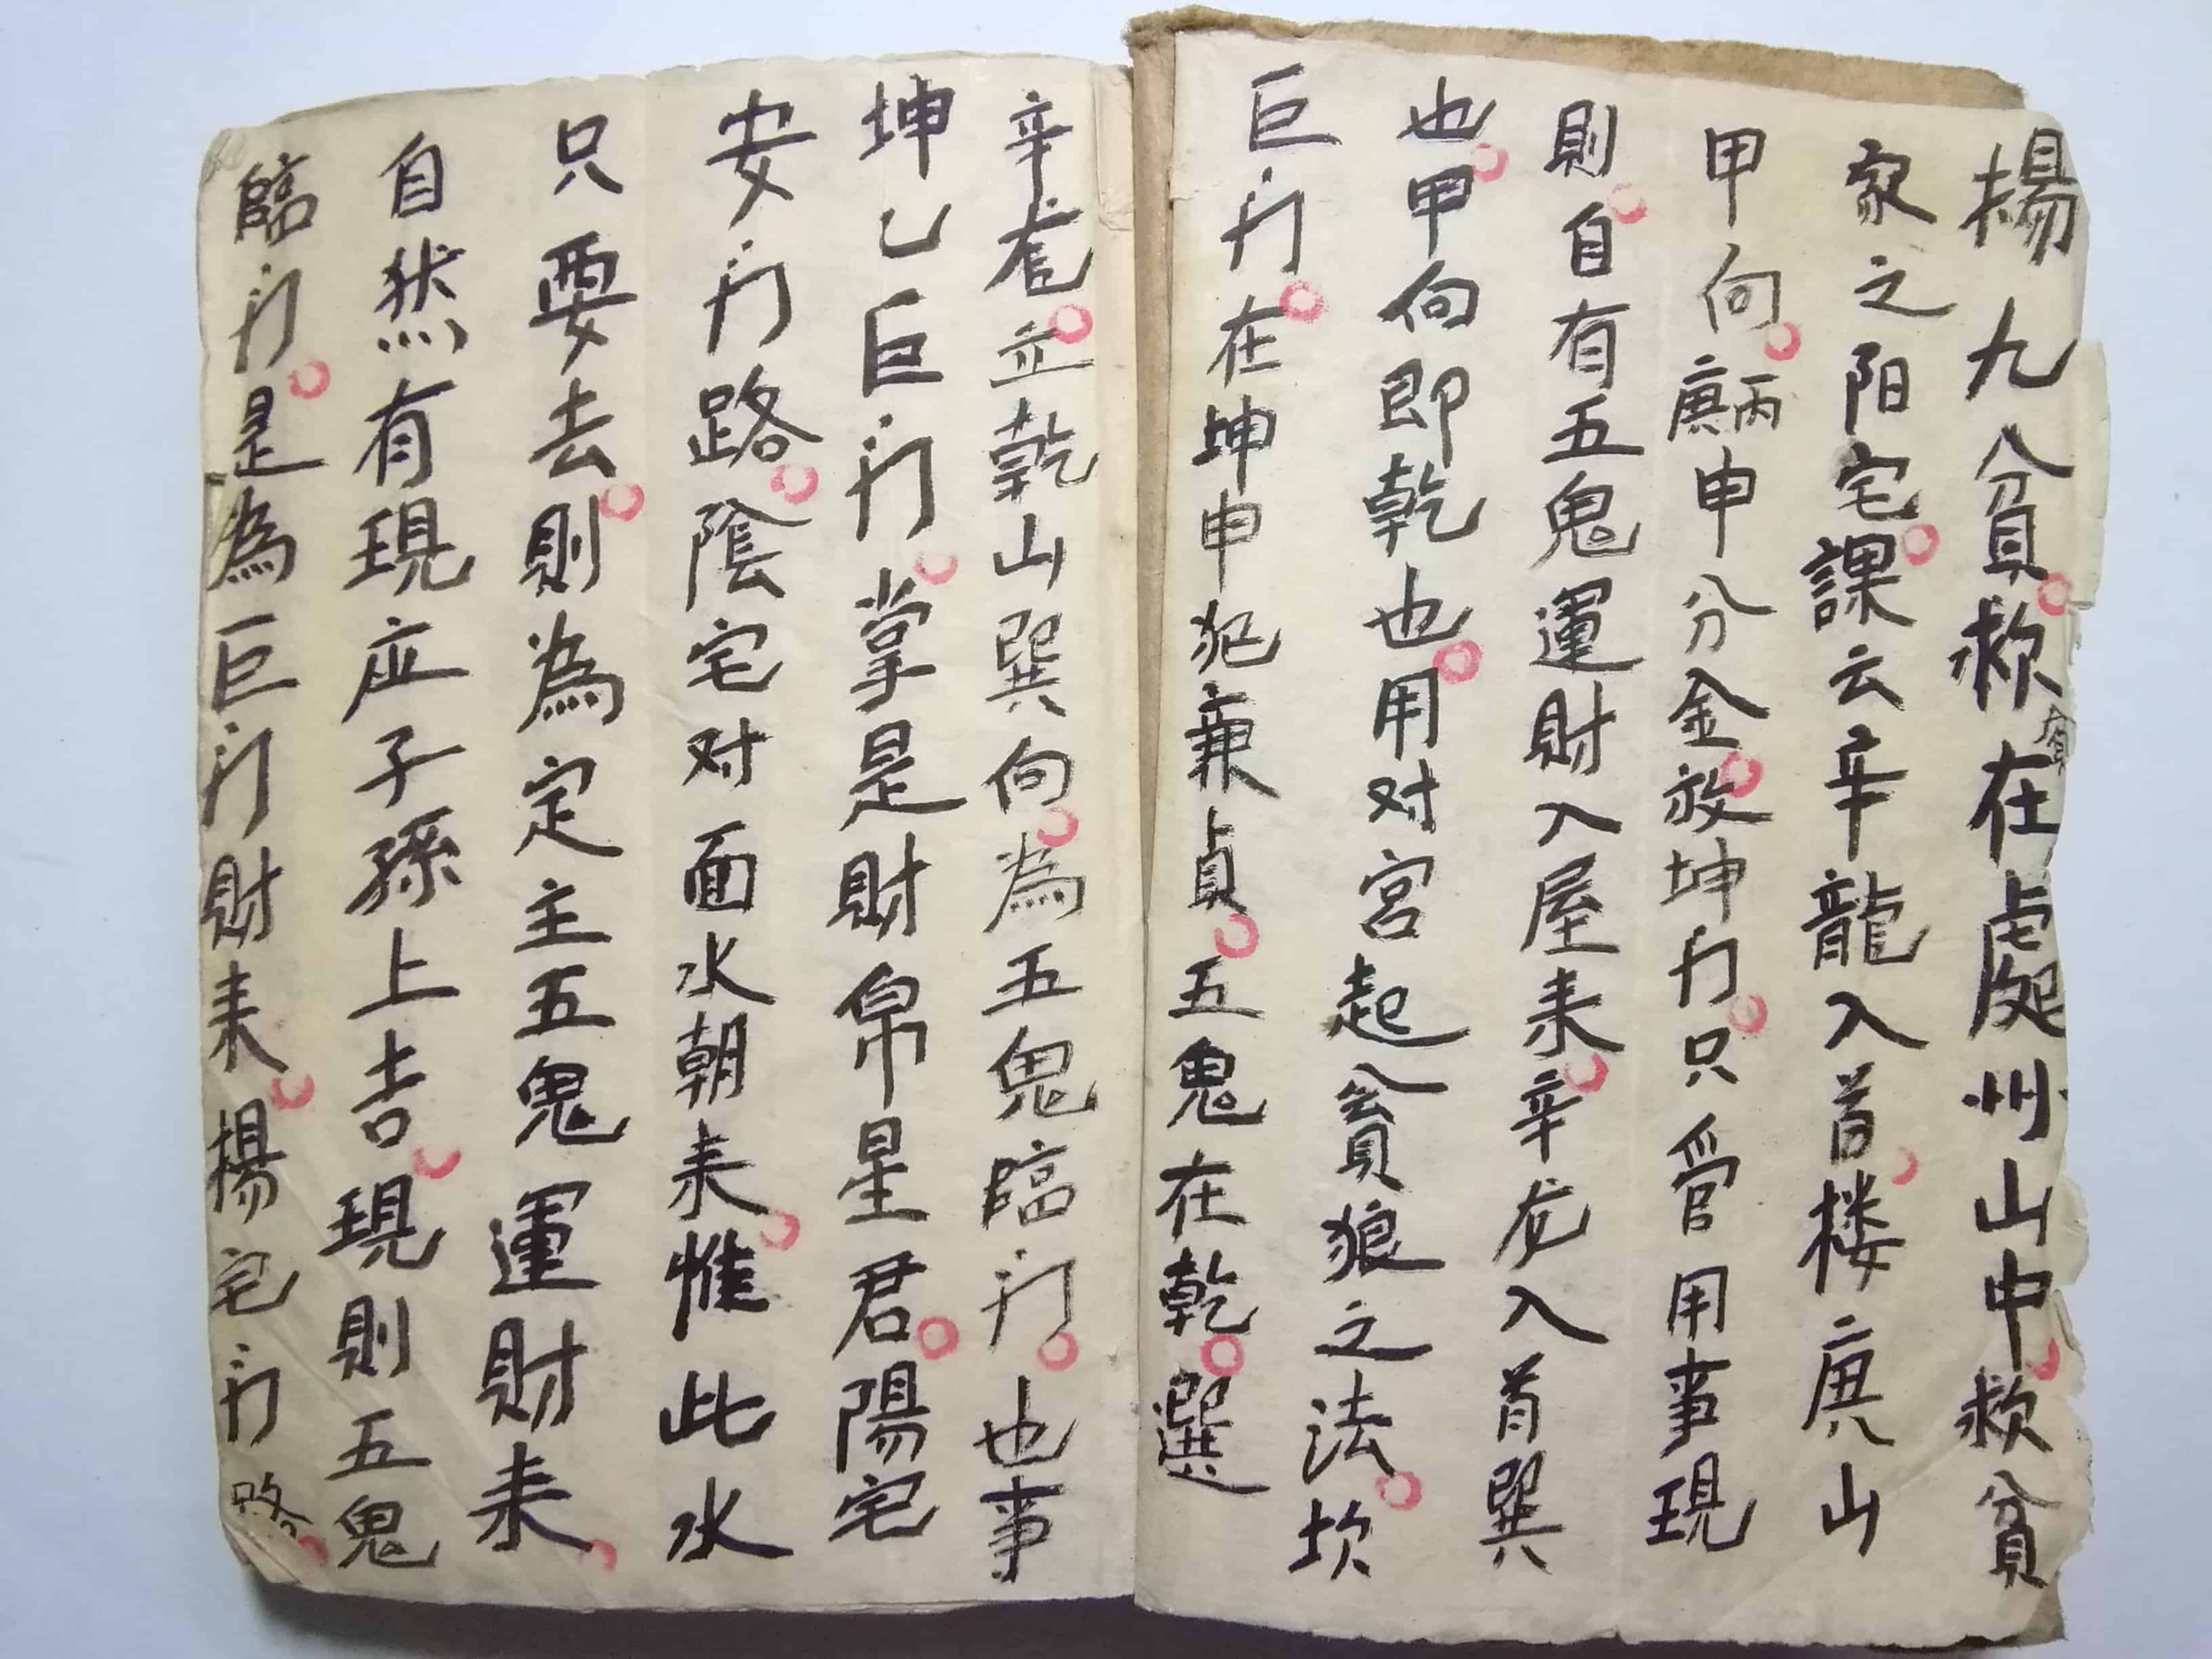 揚九貧救在處州山中救貧
貧
家之阳宅課云辛龍入首楼庚山
甲向庚丙申分金放坤门只管用事現
則自有五鬼運財入屋来辛龙入首巽
也甲向即乾也用对宮起貪狼之法坎
巨门在坤申犯廉貞五鬼在乾選
辛龙立乾山巽向為五鬼臨门也事
坤乙巨门掌是財帛星君陽宅
安门路陰宅对面水朝来惟此水
只要去則為定主五鬼運財来
自然有現应子孫上吉現則五鬼
臨门是為巨门財来楊宅门路